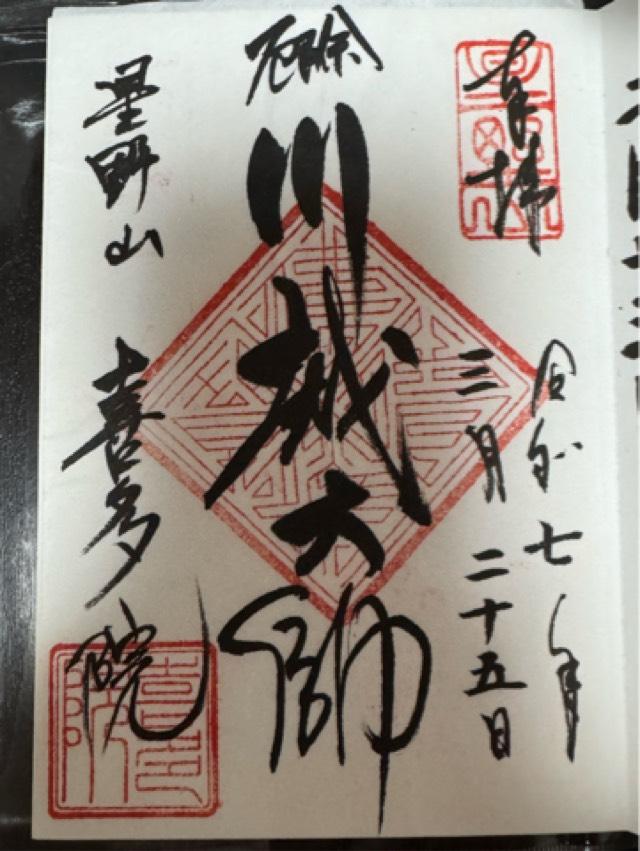 奉拝
令和七年
三月二十五日
厄除
川越大師
星野山
喜多院